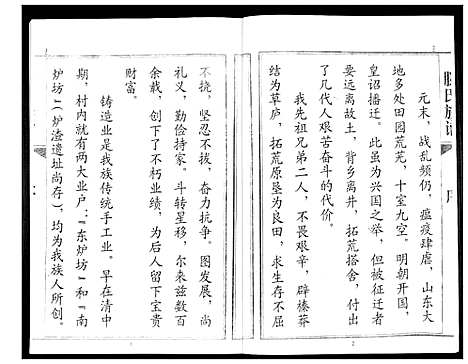 元末，战乱频仍，瘟疫肆虐，山东大
地多处田园荒芜，十室九空。明朝开国，
皇诏播迁。此虽为兴国之举，但被征迁者
要远离故土，背乡离井，拓荒搭舍，付出
了几代人艰苦奋斗的代价。
我先祖兄弟二人，不畏艰辛，辟榛莽
结为草庐，拓荒原垦为良田，求生存不屈
不挠，坚忍不拔，奋力抗争。图发展，尚
礼义，勤俭持家。斗转星移，尔来兹数百
余载，创下了不朽业绩，为后人留下宝贵
财富。
铸造业是我族传统手工业。早在清
期，村内就有两大业户：『东炉坊』和『南
炉坊』（炉渣遗址尚存），均为我族人所创。
序